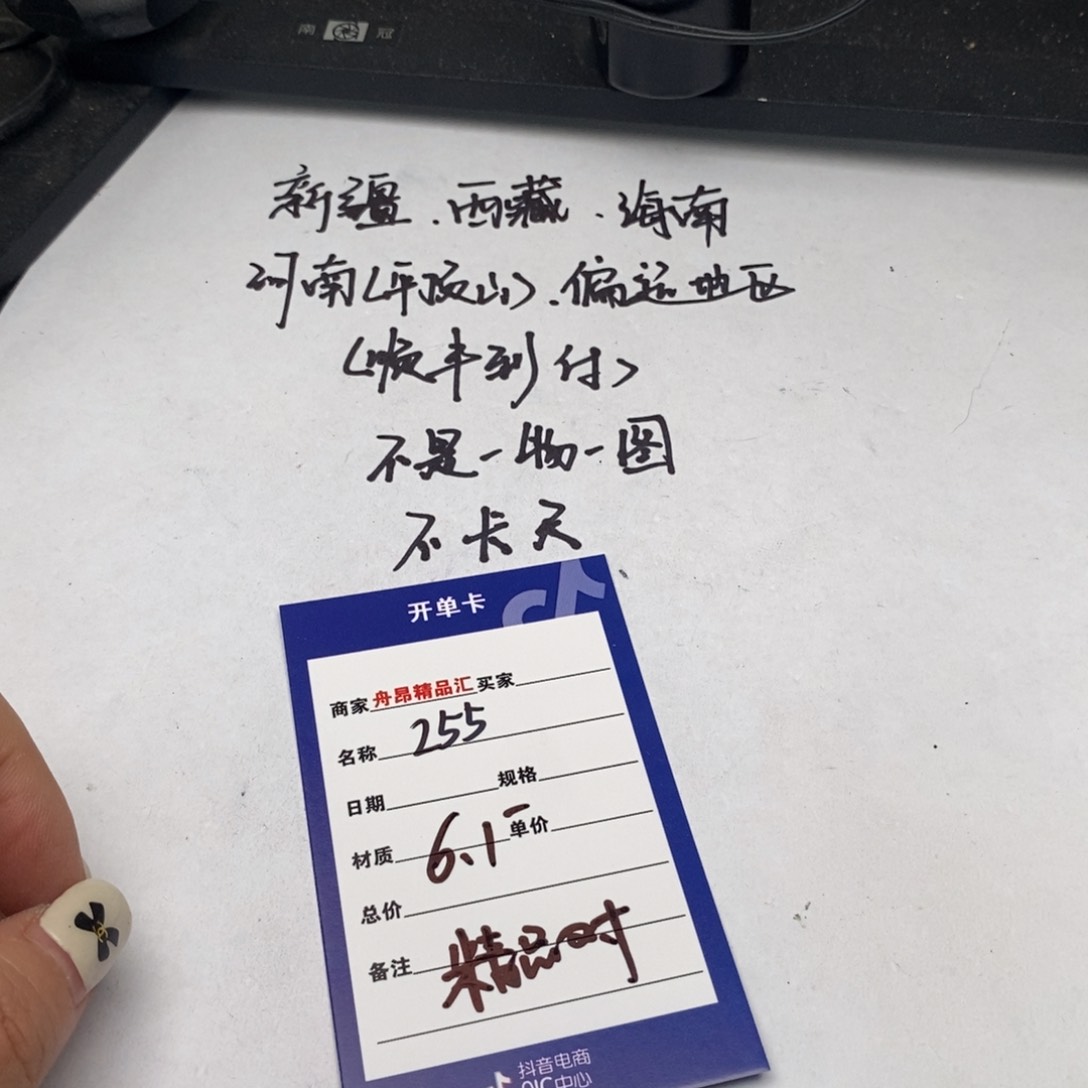 南冠
新疆.西藏.海南
河南<平顶山>.偏远地区
<顺丰到付>
不是一物一图
不卡天
开单卡
商家 舟昂精品汇 买家
名称 255
日期 规格
材质 6.1 单价
总价
备注 精品时
抖音电商
QIC中心